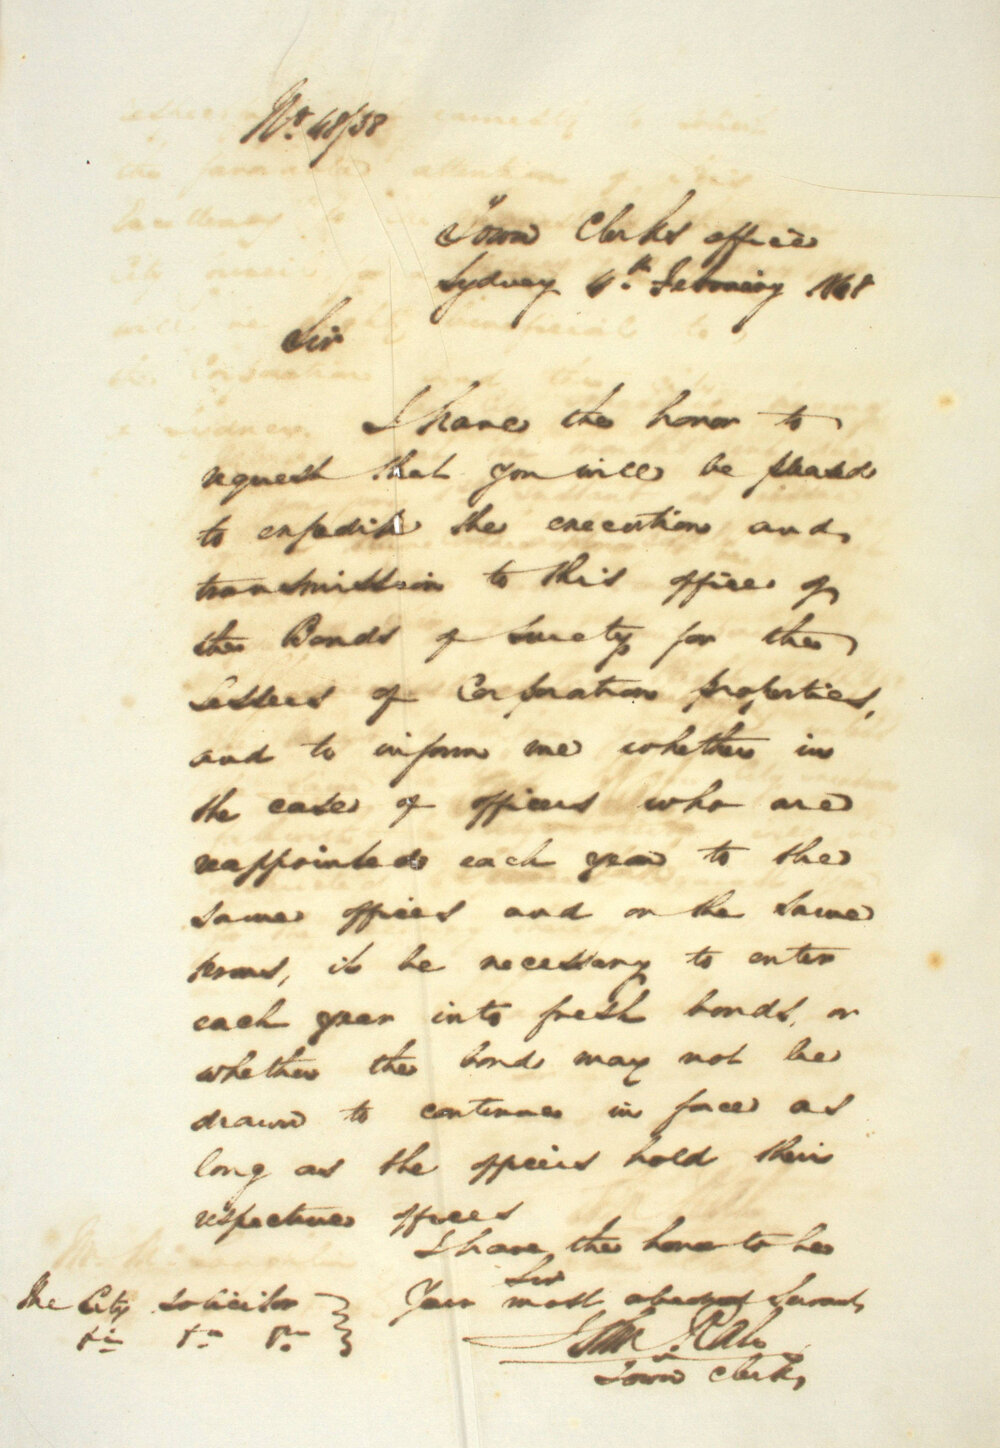 No. 48/38
Town Clerks office
Sydney 4th February 1848
Sir
I have the honor to
request that you will be pleased
to expedite the execution and
transmission to this office of
the Bonds of Surety for the
Lessees of Corporation properties,
and to inform me whether in
the case of officers who are
reappointed each year to the
same offices and on the same
terms, it be necessary to enter
each year into fresh bonds, or
whether the bond may not be
drawn to continue in force as
long as the officers hold their
respective offices
I have the honor to be
Sir
Your most obedient Servant
Town Clerk,
The City Solicitor
&c &c &c